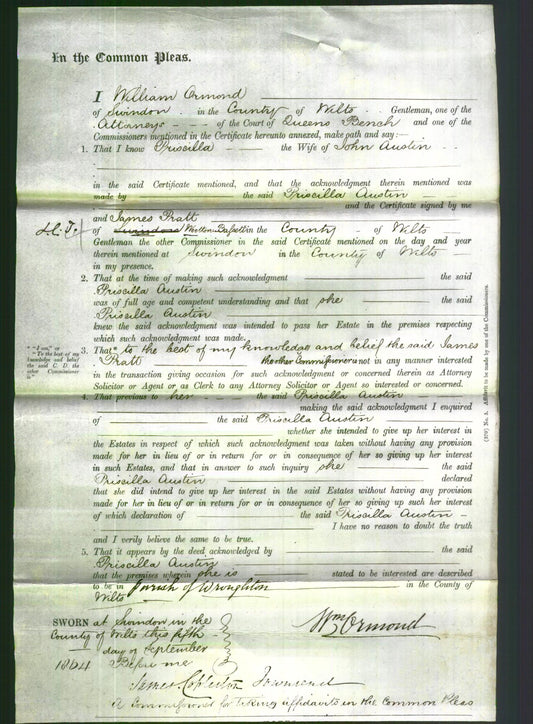 In the Common Pleas.
I William Ormond
of Swindon in the County of Wilts Gentleman, one of the
Attorneys of the Court of Queens Bench and one of the
Commissioners mentioned in the Certificate hereunto annexed, make oath and say:—
1. That I know Priscilla the Wife of John Austin
in the said Certificate mentioned, and that the acknowledgment therein mentioned was
made by the said Priscilla Austin
and the Certificate signed by me
and James Pratt
of Swindon Wootton Bassett in the County of Wilts
Gentleman the other Commissioner in the said Certificate mentioned on the day and year
therein mentioned at Swindon in the County of Wilts
in my presence.
2. That at the time of making such acknowledgment the said
Priscilla Austin
was of full age and competent understanding and that she the said
Priscilla Austin
knew the said acknowledgment was intended to pass her Estate in the premises respecting
which such acknowledgment was made.
* "I am," or
"To the best of my
knowledge and belief
the said C. D. the
other Commissioner
is"
3. That * to the best of my knowledge and belief the said James
Pratt the other Commissioner is not in any manner interested
in the transaction giving occasion for such acknowledgment or concerned therein as Attorney
Solicitor or Agent or as Clerk to any Attorney Solicitor or Agent so interested or concerned.
4. That previous to her the said Priscilla Austin
making the said acknowledgment I enquired
of the said Priscilla Austin
whether she intended to give up her interest in
the Estates in respect of which such acknowledgment was taken without having any provision
made for her in lieu of or in return for or in consequence of her so giving up her interest
in such Estates, and that in answer to such inquiry she the said
Priscilla Austin declared
that she did intend to give up her interest in the said Estates without having any provision
made for her in lieu of or in return for or in consequence of her so giving up such her interest
of which declaration of the said Priscilla Austin
I have no reason to doubt the truth
and I verily believe the same to be true.
5. That it appears by the deed acknowledged by the said
Priscilla Austin
that the premises wherein she is stated to be interested are described
to be in Parish of Wroughton in the County of
Wilts
(370) No. 3. Affidavit to be made by one of the Commissioners.
SWORN at Swindon in the
County of Wilts this fifth
day of September
1864 Before me
Wm Ormond
James Copleston Townsend
A Commissioner for taking affidavits in the Common Pleas